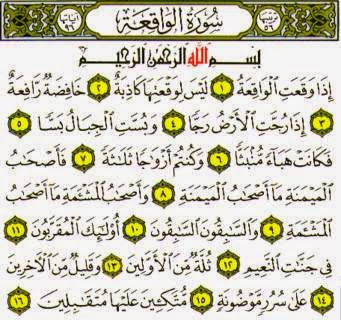 ترتيبها ٥٦ سُورَةُ الوَاقِعَةِ آياتها ٩٦
بِسْمِ ٱللَّهِ ٱلرَّحْمَٰنِ ٱلرَّحِيمِ
إِذَا وَقَعَتِ ٱلْوَاقِعَةُ ١ لَيْسَ لِوَقْعَتِهَا كَاذِبَةٌ ٢ خَافِضَةٌ رَّافِعَةٌ
٣ إِذَا رُجَّتِ ٱلْأَرْضُ رَجًّا ٤ وَبُسَّتِ ٱلْجِبَالُ بَسًّا ٥
فَكَانَتْ هَبَآءً مُّنۢبَثًّا ٦ وَكُنتُمْ أَزْوَٰجًا ثَلَٰثَةً ٧ فَأَصْحَٰبُ
ٱلْمَيْمَنَةِ مَآ أَصْحَٰبُ ٱلْمَيْمَنَةِ ٨ وَأَصْحَٰبُ ٱلْمَشْـَٔمَةِ مَآ أَصْحَٰبُ
ٱلْمَشْـَٔمَةِ ٩ وَٱلسَّٰبِقُونَ ٱلسَّٰبِقُونَ ١٠ أُو۟لَٰٓئِكَ ٱلْمُقَرَّبُونَ ١١
فِى جَنَّٰتِ ٱلنَّعِيمِ ١٢ ثُلَّةٌ مِّنَ ٱلْأَوَّلِينَ ١٣ وَقَلِيلٌ مِّنَ ٱلْءَاخِرِينَ
١٤ عَلَىٰ سُرُرٍ مَّوْضُونَةٍ ١٥ مُّتَّكِـِٔينَ عَلَيْهَا مُتَقَٰبِلِينَ ١٦